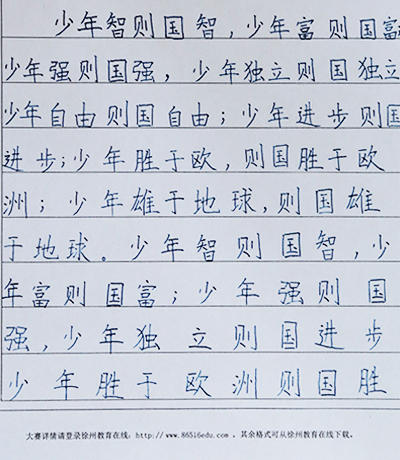 少年智则国智，少年富则国富
少年强则国强，少年独立则国独立
少年自由则国自由；少年进步则国
进步；少年胜于欧，则国胜于欧
洲；少年雄于地球，则国雄
于地球。少年智则国智，少
年富则国富；少年强则国
强，少年独立则国进步
少年胜于欧洲则国胜
大赛详情请登录徐州教育在线：http://www.86516edu.com ，其余格式可从徐州教育在线下载。